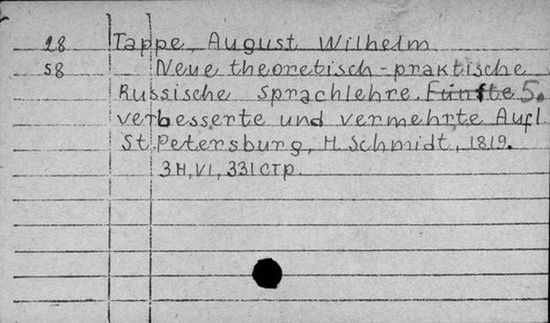 28 Tappe, August Wilhelm
58 Neue theoretisch-praktische
Russische Sprachlehre. Fünfte 5.
verbesserte und vermehrte Aufl.
St. Petersburg, H. Schmidt, 1819.
3 н, VI, 331 стр.